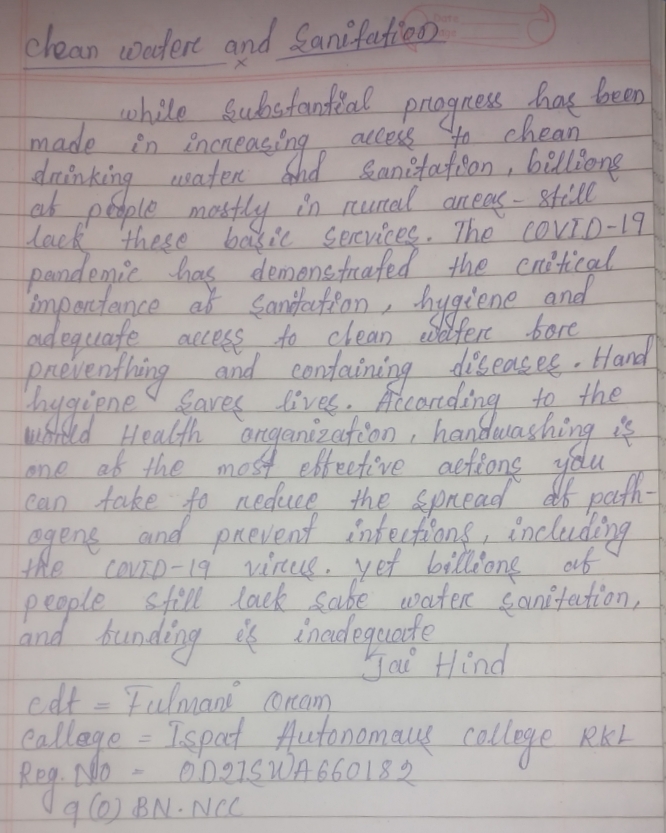 Clean water and Sanitation
x
while substantial progress has been
made in increasing access to clean
drinking water and sanitation, billions
of people mostly in rural areas - still
lack these basic services. The COVID-19
pandemic has demonstrated the critical
importance of sanitation, hygiene and
adequate access to clean water fore
preventhing and containing diseases. Hand
hygiene saves lives. According to the
world Health organization, handwashing is
one of the most effective actions you
can take to reduce the spread of path-
ogens and prevent infections, including
the COVID-19 virus. yet billions of
people still lack safe water sanitation,
and funding is inadequate
Jai Hind
cdt = Fulmani Oram
Callage = Ispat Autonomaus college RKL
Reg. No - OD21SWA660182
9(O) BN. NCC